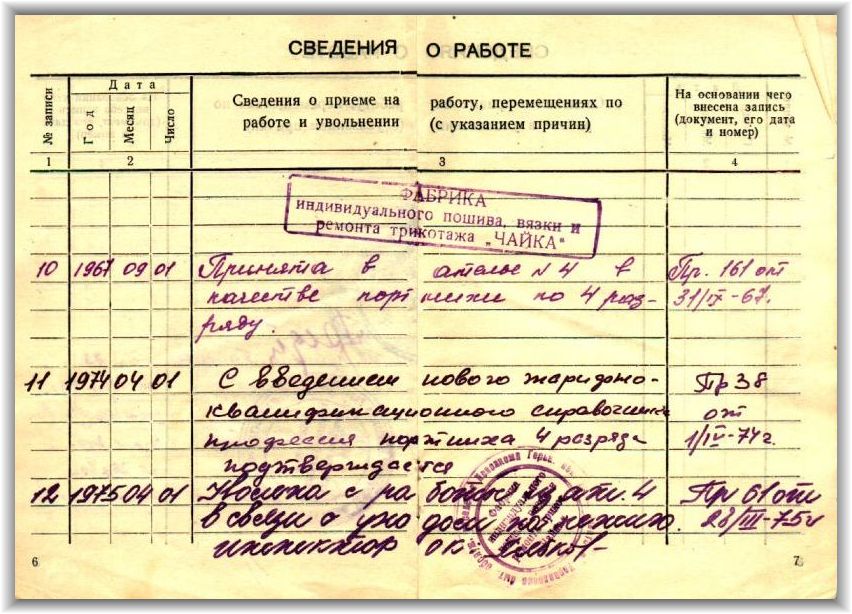 СВЕДЕНИЯ О РАБОТЕ
№ записи
Дата
Год
Месяц
Число
Сведения о приеме на работу, перемещениях по
работе и увольнении (с указанием причин)
На основании чего
внесена запись
(документ, его дата
и номер)
1 2 3 4
ФАБРИКА
индивидуального пошива, вязки и
ремонта трикотажа „ЧАЙКА“
10 1967 09 01 Принята в ателье № 4 в Пр. 161 от
качестве портнихи по 4 раз- 31/IX-67.
ряду.
11 1974 04 01 С введением нового тарифно- Пр 38
квалификационного справочника от
профессия портниха 4 разряда 1/IV-74г.
подтверждается
12 1975 04 01 Уволена с работы из ат. 4 Пр 61 от
в связи с уходом на пенсию. 28/III-75г
инспектор ок
6 7